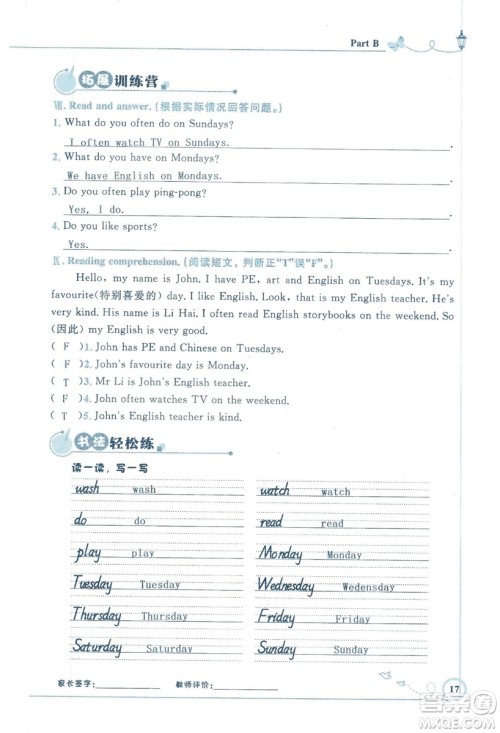 Part B
拓展训练营
Ⅷ. Read and answer.（根据实际情况回答问题。）
1. What do you often do on Sundays?
I often watch TV on Sundays.
2. What do you have on Mondays?
We have English on Mondays.
3. Do you often play ping-pong?
Yes, I do.
4. Do you like sports?
Yes.
Ⅸ. Reading comprehension.（阅读短文，判断正“T”误“F”。）
Hello, my name is John. I have PE, art and English on Tuesdays. It's my
favourite(特别喜爱的) day. I like English. Look, that is my English teacher. He's
very kind. His name is Li Hai. I often read English storybooks on the weekend. So
(因此) my English is very good.
( F )1. John has PE and Chinese on Tuesdays.
( F )2. John's favourite day is Monday.
( T )3. Mr Li is John's English teacher.
( F )4. John often watches TV on the weekend.
( T )5. John's English teacher is kind.
书法轻松练
读一读，写一写
wash wash watch watch
do do read read
play play Monday Monday
Tuesday Tuesday Wednesday Wedensday
Thursday Thursday Friday Friday
Saturday Saturday Sunday Sunday
家长签字：
教师评价：
17